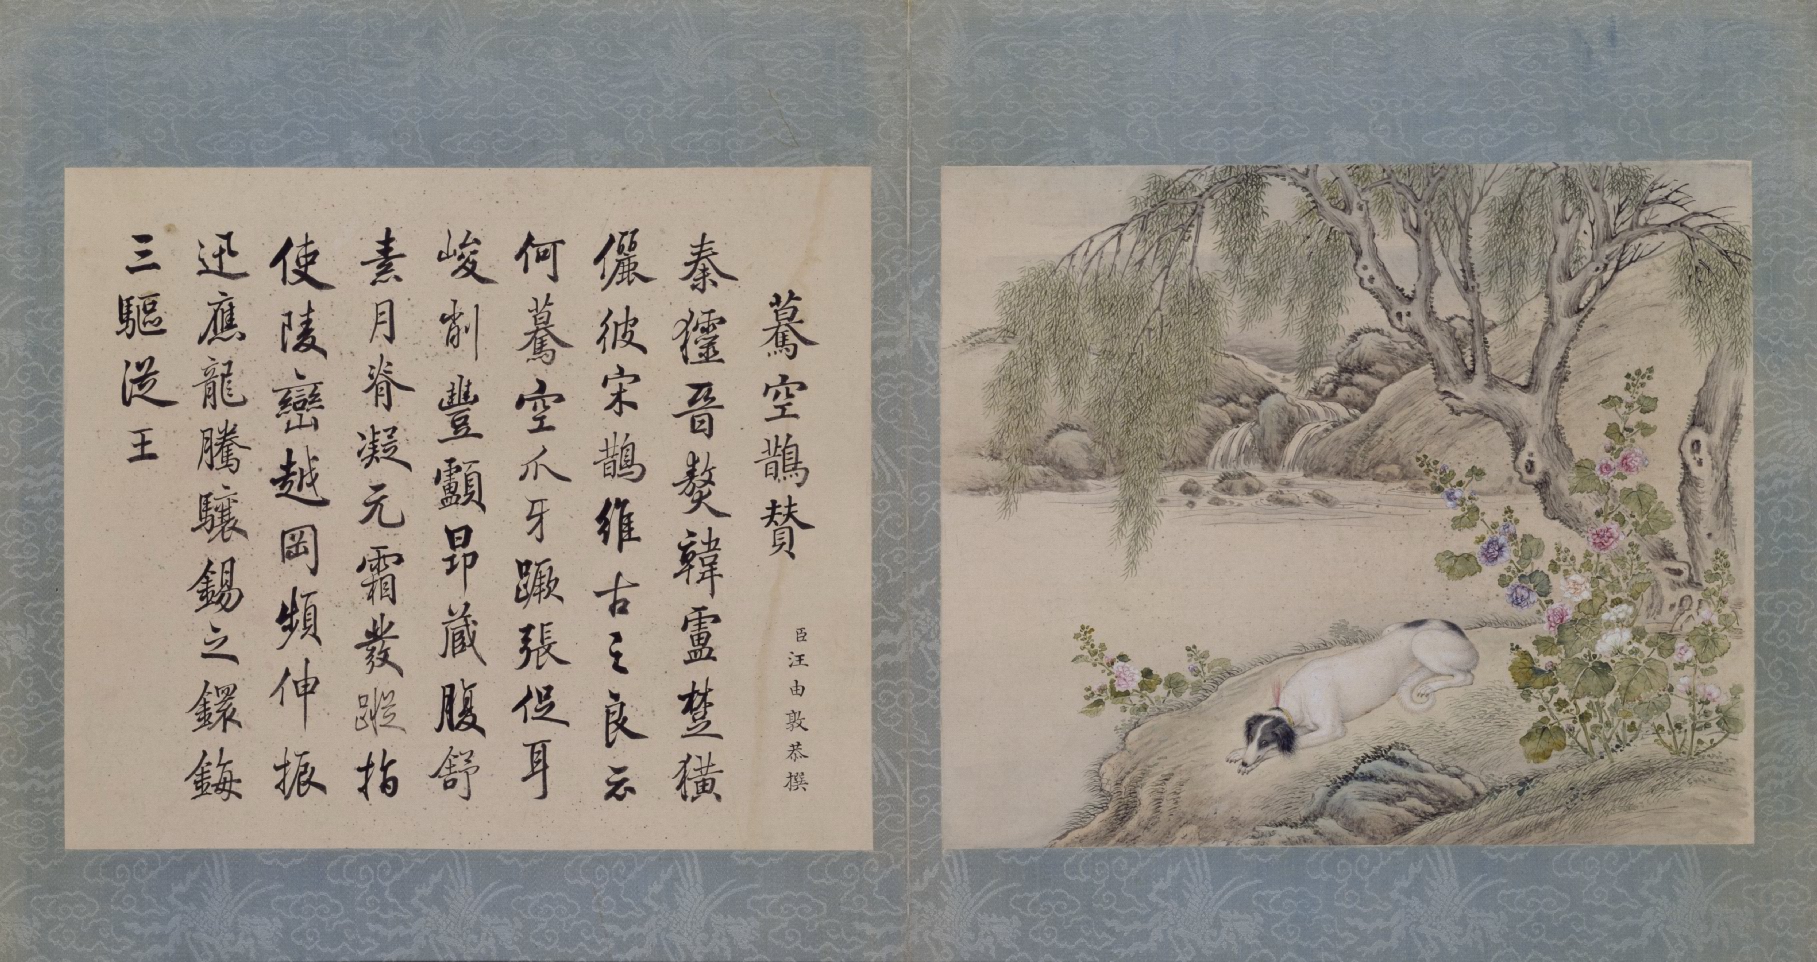 驀空鵲賛
臣汪由敦恭撰
秦獹晉獒韓盧楚獚
儷彼宋鵲維古之良云
何驀空爪牙蹶張促耳
峻削豐顱昂藏腹舒
素月脊凝元霜發蹤指
使陵巒越岡頻伸振
迅應龍騰驤錫之鐶鋂
三驅從王